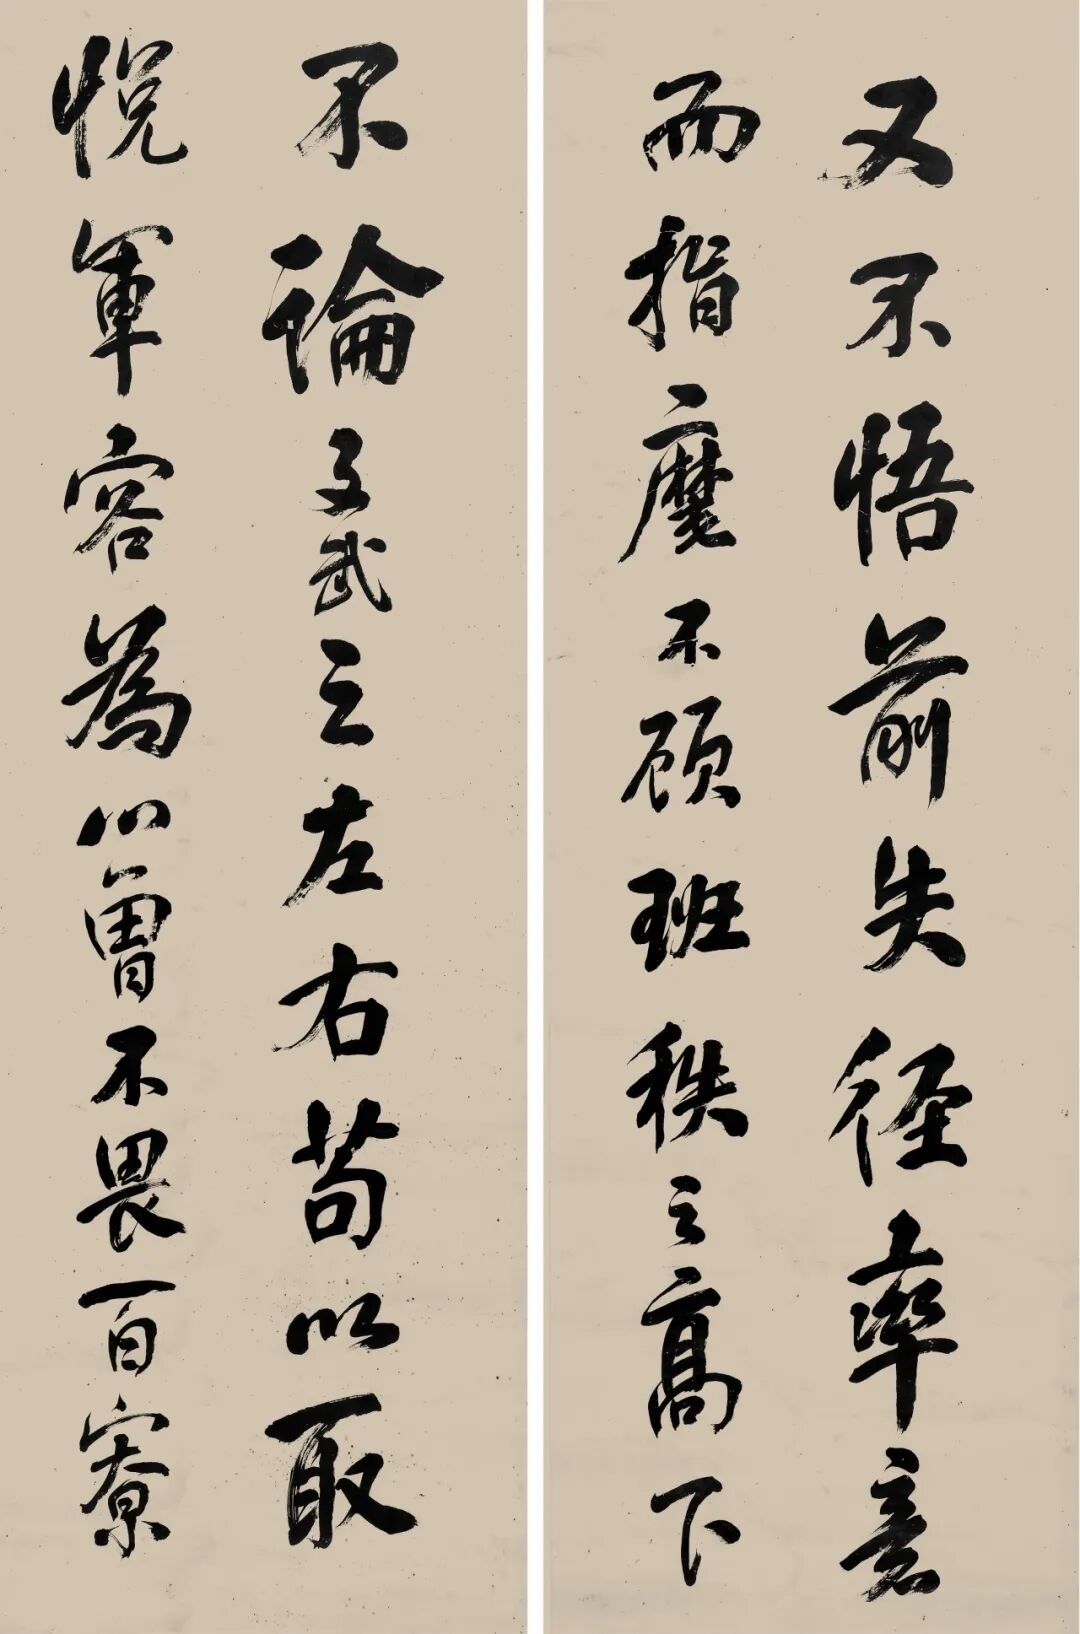 又不悟前失徑率意
而指麾不顧班秩之高下
不論文武之左右苟以取
悅軍容為心曽不畏百寮